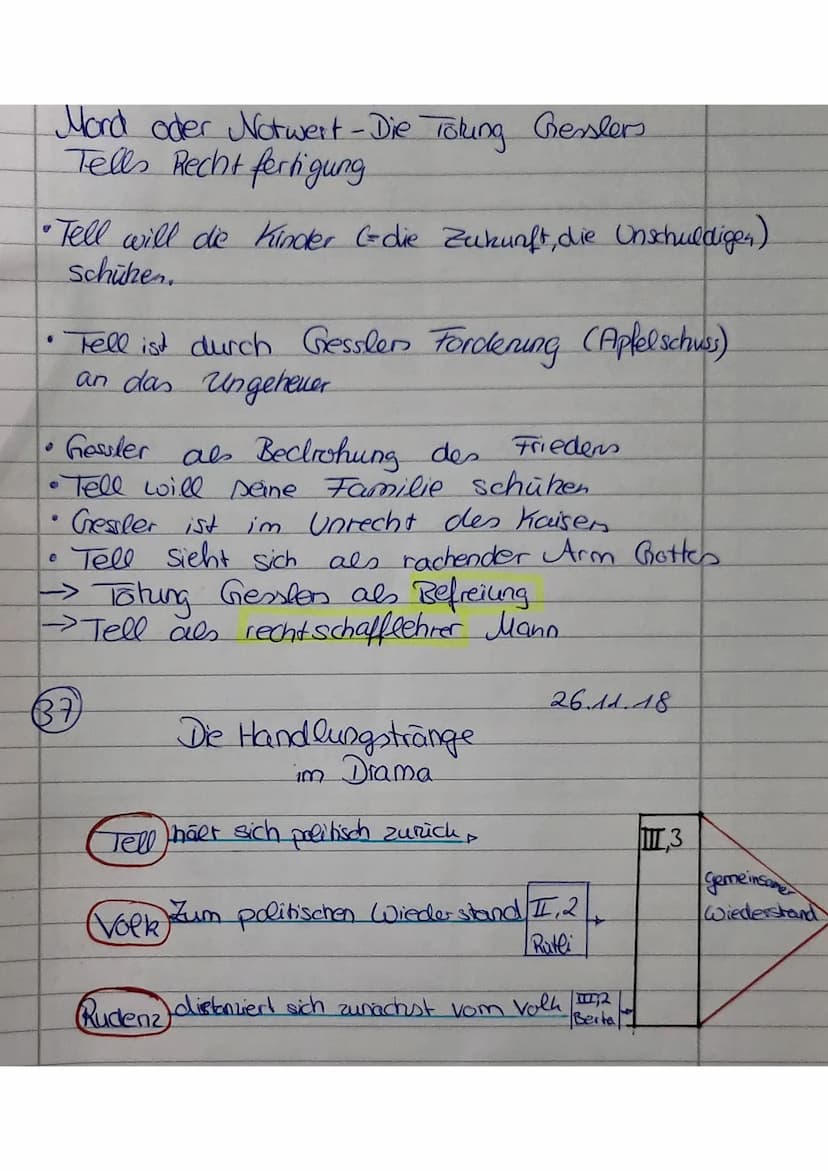 Mord oder Notwert - Die Tötung Gesslers
Tells Rechtfertigung
• Tell will die Kinder (=die Zukunft, die Unschuldigen)
schützen.
• Tell ist durch Gesslers Forderung (Apfelschuss)
an das Ungeheuer
• Gessler als Bedrohung des Friedens
• Tell will seine Familie schützen
• Gessler ist im Unrecht des Kaisers
• Tell sieht sich als rachender Arm Gottes
→ Tötung Gesslers als Befreiung
→ Tell als rechtschaffehrer Mann
37
26.11.18
Die Handlungstränge
im Drama
Tell häer sich politisch zurück
III,3
Volk Zum politischen Wiederstand II,2
Rütli
gemeinsamer
Wiederstand
Rudenz distanziert sich zunächst vom Volk III,2
Berta